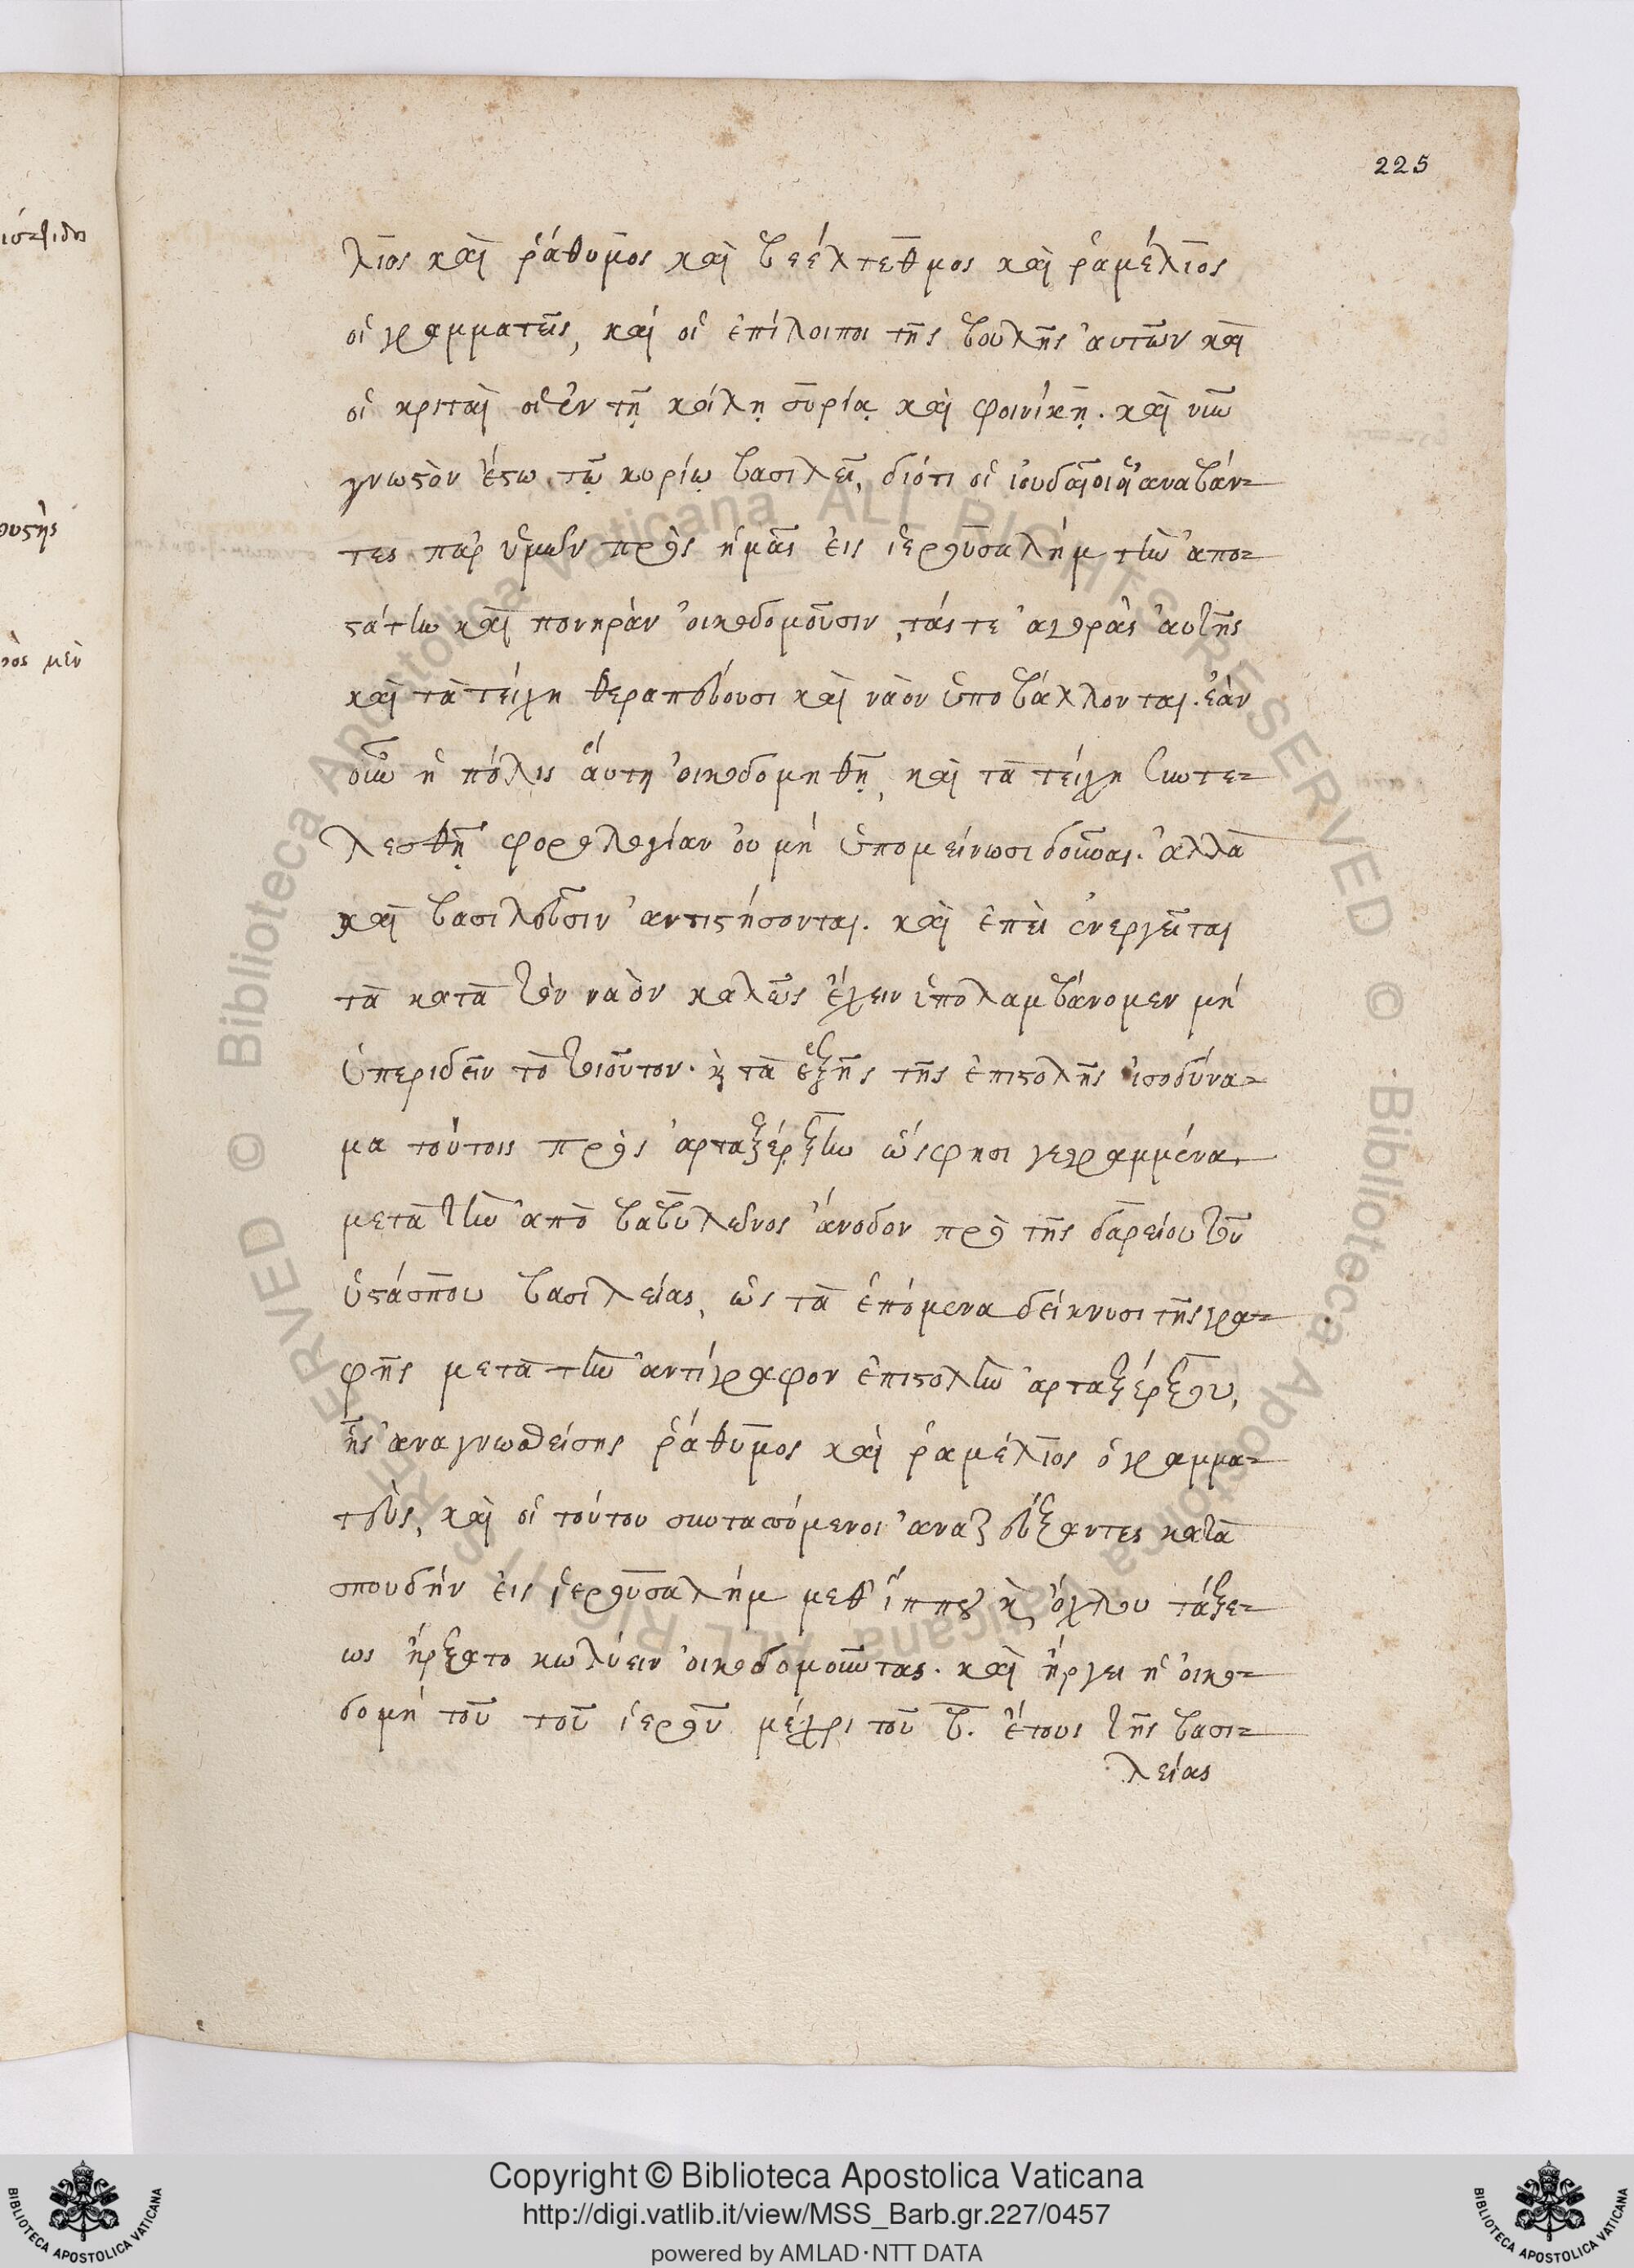 225
λῖος καὶ ῥάθυμος καὶ βεέλτεθμος καὶ ῥαμέλῖος
οἱ γραμματεῖς, καὶ οἱ ἐπίλοιποι τῆς βουλῆς ἀυτῶν καὶ
οἱ κριταὶ οἱ ἐν τῇ κοίλῃ συρίᾳ καὶ φοινίκῃ. καὶ νῦν
γνωστὸν ἔστω τῷ κυρίῳ βασιλεῖ, διότι οἱ ἰουδαῖοι οἱ ἀναβάν-
τες παρ ὑμῶν πρὸς ἡμᾶς ἐις ἱερουσαλήμ τὴν ἀπο-
στάτην καὶ πονηρὰν ὀικοδομοῦσιν, τάς τε ἀγορὰς ἀυτῆς
καὶ τὰ τείχη θεραπεύουσι καὶ νὰον ὑποβάλλονται. ἐὰν
οὖν ἡ πόλις ἅυτη ὀικοδομηθῇ, καὶ τὰ τείχη συντε-
λεσθῇ φορολογίαν ὀυ μή ὑπομείνωσι δοῦναι. ἀλλὰ
καὶ βασιλεῦσιν ἀντιστήσονται. καὶ ἐπὲι ἐνεργεῖται
τὰ κατὰ τὸν ναὸν καλῶς ἔχειν ὑπολαμβάνομεν μή
ὑπεριδεῖν τὸ τοιοῦτον. καὶ τὰ ἑξῆς τῆς ἐπιστολῆς ἰσοδύνα-
μα τούτοις πρὸς ἀρταξέρξην ὥς φησι γεγραμμένα,
μετὰ τὴν ἀπὸ βαβυλῶνος ἄνοδον πρὸ τῆς δαρείου τοῦ
ὑστάσπου βασιλείας, ὡς τὰ ἑπόμενα δείκνυσι τῆς γρα-
φῆς μετὰ τὴν ἀντίγραφον ἐπιστολὴν ἀρταξέρξου,
ἧς ἀναγνωσθείσης ῥάθυμος καὶ ῥαμέλῖος ὁ γραμμα-
τεὺς, καὶ οἱ τούτου συντασσόμενοι ἀναζεύξαντες κατὰ
σπουδήν ἐις ἱερουσαλήμ μεθ ἵππου καὶ ὄχλου τάξε-
ως ἤρξατο κωλύειν ὀικοδομοῦντας. καὶ ἤργει ἡ ὀικο-
δομή τοῦ τοῦ ἱεροῦ μέχρι τοῦ β. ἔτους τῆς βασι-
λείας
Copyright © Biblioteca Apostolica Vaticana
http://digi.vatlib.it/view/MSS_Barb.gr.227/0457
powered by AMLAD·NTT DATA